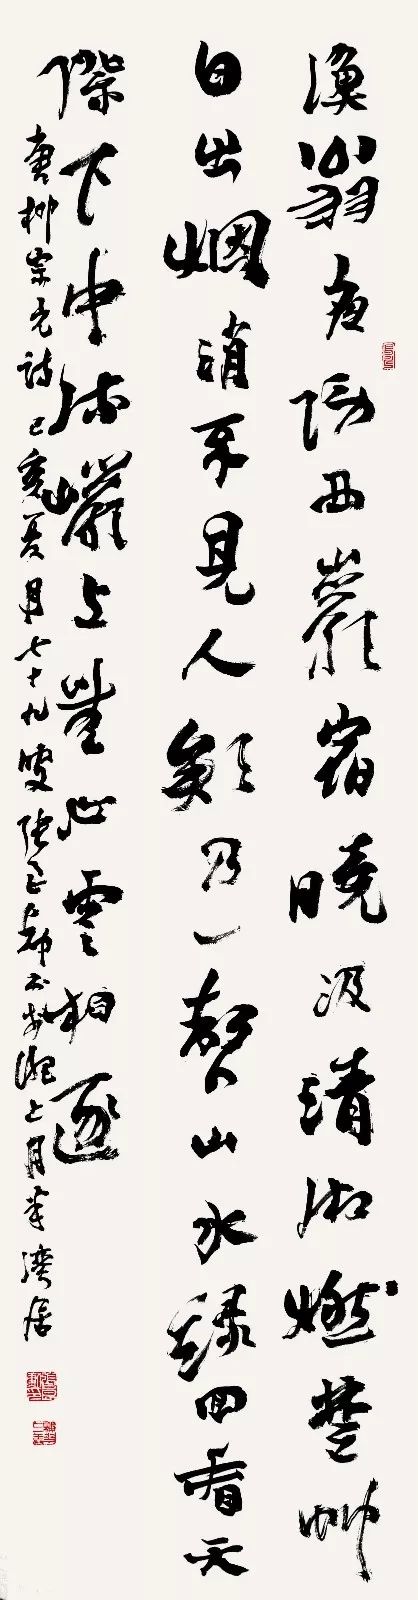 漁翁夜傍西巖宿曉汲清湘燃楚竹
日出烟消不見人欸乃一聲山水綠回看天
際下中流巖上無心雲相逐
唐柳宗元詩己亥夏月七十九叟張 上月 灣居